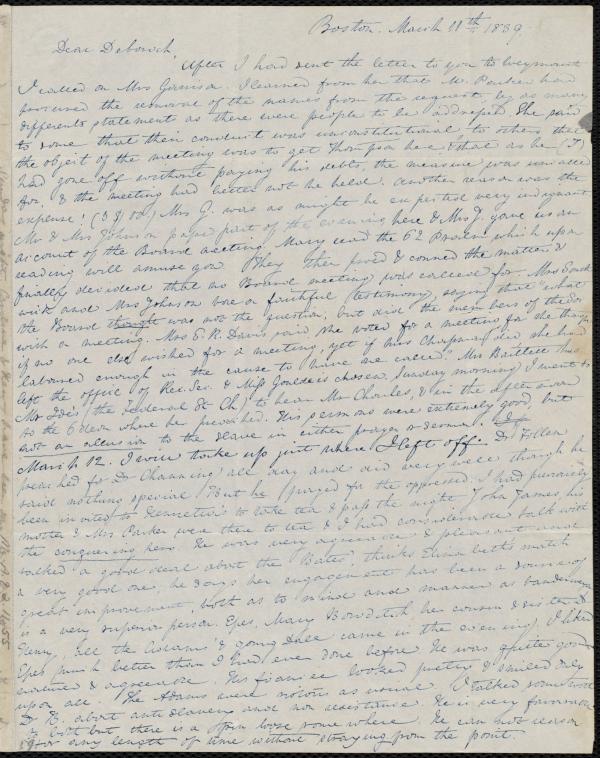 Boston. March 11th 1839
Dear Deborah,
After I had sent the letter to you to Weymouth
I called on Mrs Garrison. I learned from her that Mrs. Parker had
procured the removal of the names from the request, by as many
different statements as there were people to be addressed. She said
to some that their conduct was unconstitutional, to others that
the object of the meeting was to get Thompson here & that as he (T)
had gone off without paying his debts, the measure was uncalled
for, & the meeting had better not be held. Another reason was the
expense! Mrs G. was as might be expected very indignant
Mr & Mrs Johnson passed part of the evening here & Mrs J. gave us an
account of the Board meeting. Mary read the 62 Psalm which upon
reading will amuse you. They then pro'd & conned the matter &
finally decided that no Board meeting was called for. Mrs South
wick and Mrs Johnson bore a faithful testimony, saying that "what
the board thought was not the question, but did the members of the Soc
wish a meeting. Mrs E. R. Davis said she voted for a meeting for she thought
if no one else wished for a meeting, yet if Mrs Chapman did she had
laboured enough in the cause to have one called." Mrs Bartlett has
left the office of Rec. Sec. & Miss Gould is chosen. Sunday morning I went to
Mr (the Federal St Ch,) to hear Mr Charles, & in the afternoon
to the Odeon where he preached. His sermons were extremely good, but
not an allusion to the slave in either prayer or sermon.
March 12. I will take up just where I left off. Dr Follen
preached for Dr Channing all day and did very well though he
said nothing special. But he prayed for the oppressed. I had previously
been invited to Henrietta's to take tea & pass the night. John James, his
mother & Mrs Parker were there to tea & I had considerable talk with
the conquering hero. He was very agreeable & pleasant and
talked a good deal about the Bates', thinks match
a very good one, he says her engagement has been a source of
great improvement, both as to mind and manner as
is a very superior person. Epes, Mary Bowditch her cousin & sister &
Henry, all the Adams' & young Dale came in the evening. I liked
Epes much better than I had ever done before. He was quite good
natured & agreeable. His fiancee looked pretty & smiled only
upon all. The Adams were riotous as usual. I talked some with
Dr B. about anti slavery and non resistance. He is very fair
in both but there is a screw loose some where. He can not reason
for any length of time without straying from the point.